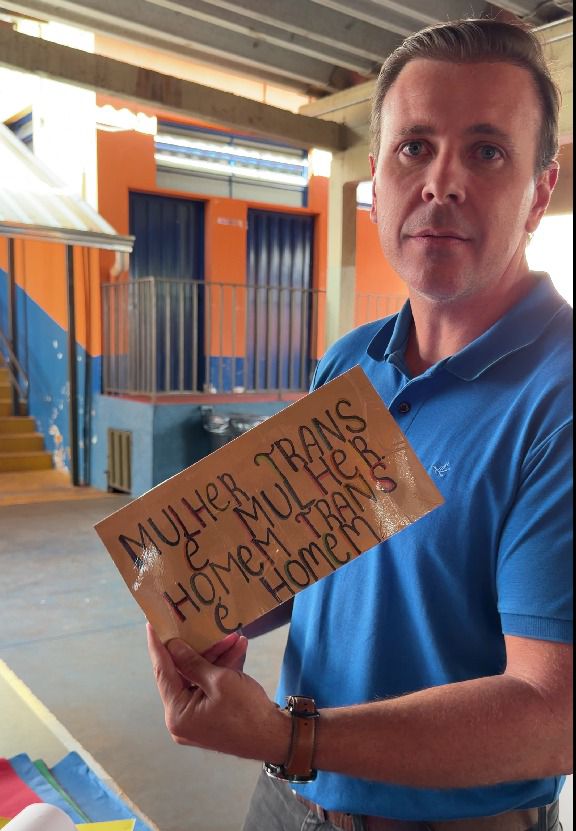 MULHER TRANS
É MULHER
HOMEM TRANS
É HOMEM